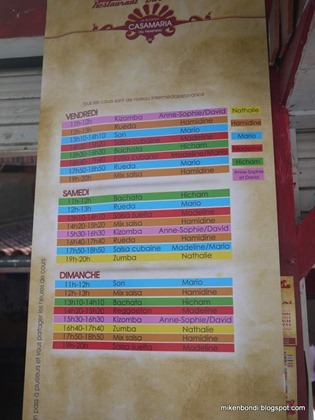 Restaurant Bar
CASAMARIA
VENDREDI
11h-12h Kizomba Anne-Sophie/David
Nathalie
12h-13h Rueda Hamidine
Hamidine
13h10-14h10 Son Mario
Mario
Madeline
Bachata Hicham
Hicham
17h50-18h50 Rueda Mario
Anne-Sophie et David
19h-20h Mix salsa Hamidine
SAMEDI
11h-12h Bachata Hicham
12h-13h Rueda Mario
13h10-14h10 Salsa suelta Madeline
14h20-15h20 Mix salsa Hamidine
15h30-16h30 Kizomba Anne-Sophie/David
16h40-17h40 Rueda Hamidine
17h50-18h50 Salsa cubaine Madeline/Mario
19h-20h Zumba Nathalie
DIMANCHE
11h-12h Son Mario
12h-13h Mix salsa Hamidine
13h10-14h10 Bachata Hicham
14h20-15h20 Reggaeton Madeline
15h30-16h30 Kizomba Anne-Sophie/David
16h40-17h40 Zumba Nathalie
17h50-18h50 Mix salsa Hamidine
19h-20h Salsa suelta Madeline
mikenbondi.blogspot.com